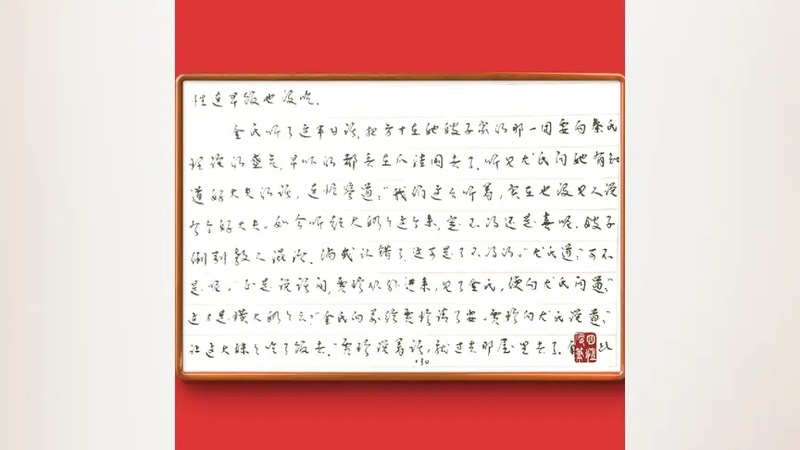 性连早饭也没吃。
金氏听了这半日话,把方才在她嫂子家的那一团要向秦氏
理论的盛气,早吓的都丢在爪洼国去了。听见尤氏问她有知
道好大夫的话,连忙答道:“我们这么听着,实在也没见人说
有个好大夫。如今听起大奶奶这个来,定不得还是喜呢。嫂子
倒别教人混治,倘或认错了,这可是了不得的。”尤氏道:“可不
是呢。”正是说话间,贾珍从外进来,见了金氏,便向尤氏问道:“
这不是璜大奶奶么?”金氏向前给贾珍请了安。贾珍向尤氏说道:“
让这大妹妹吃了饭去。”贾珍说着话,就过去那屋里去了。